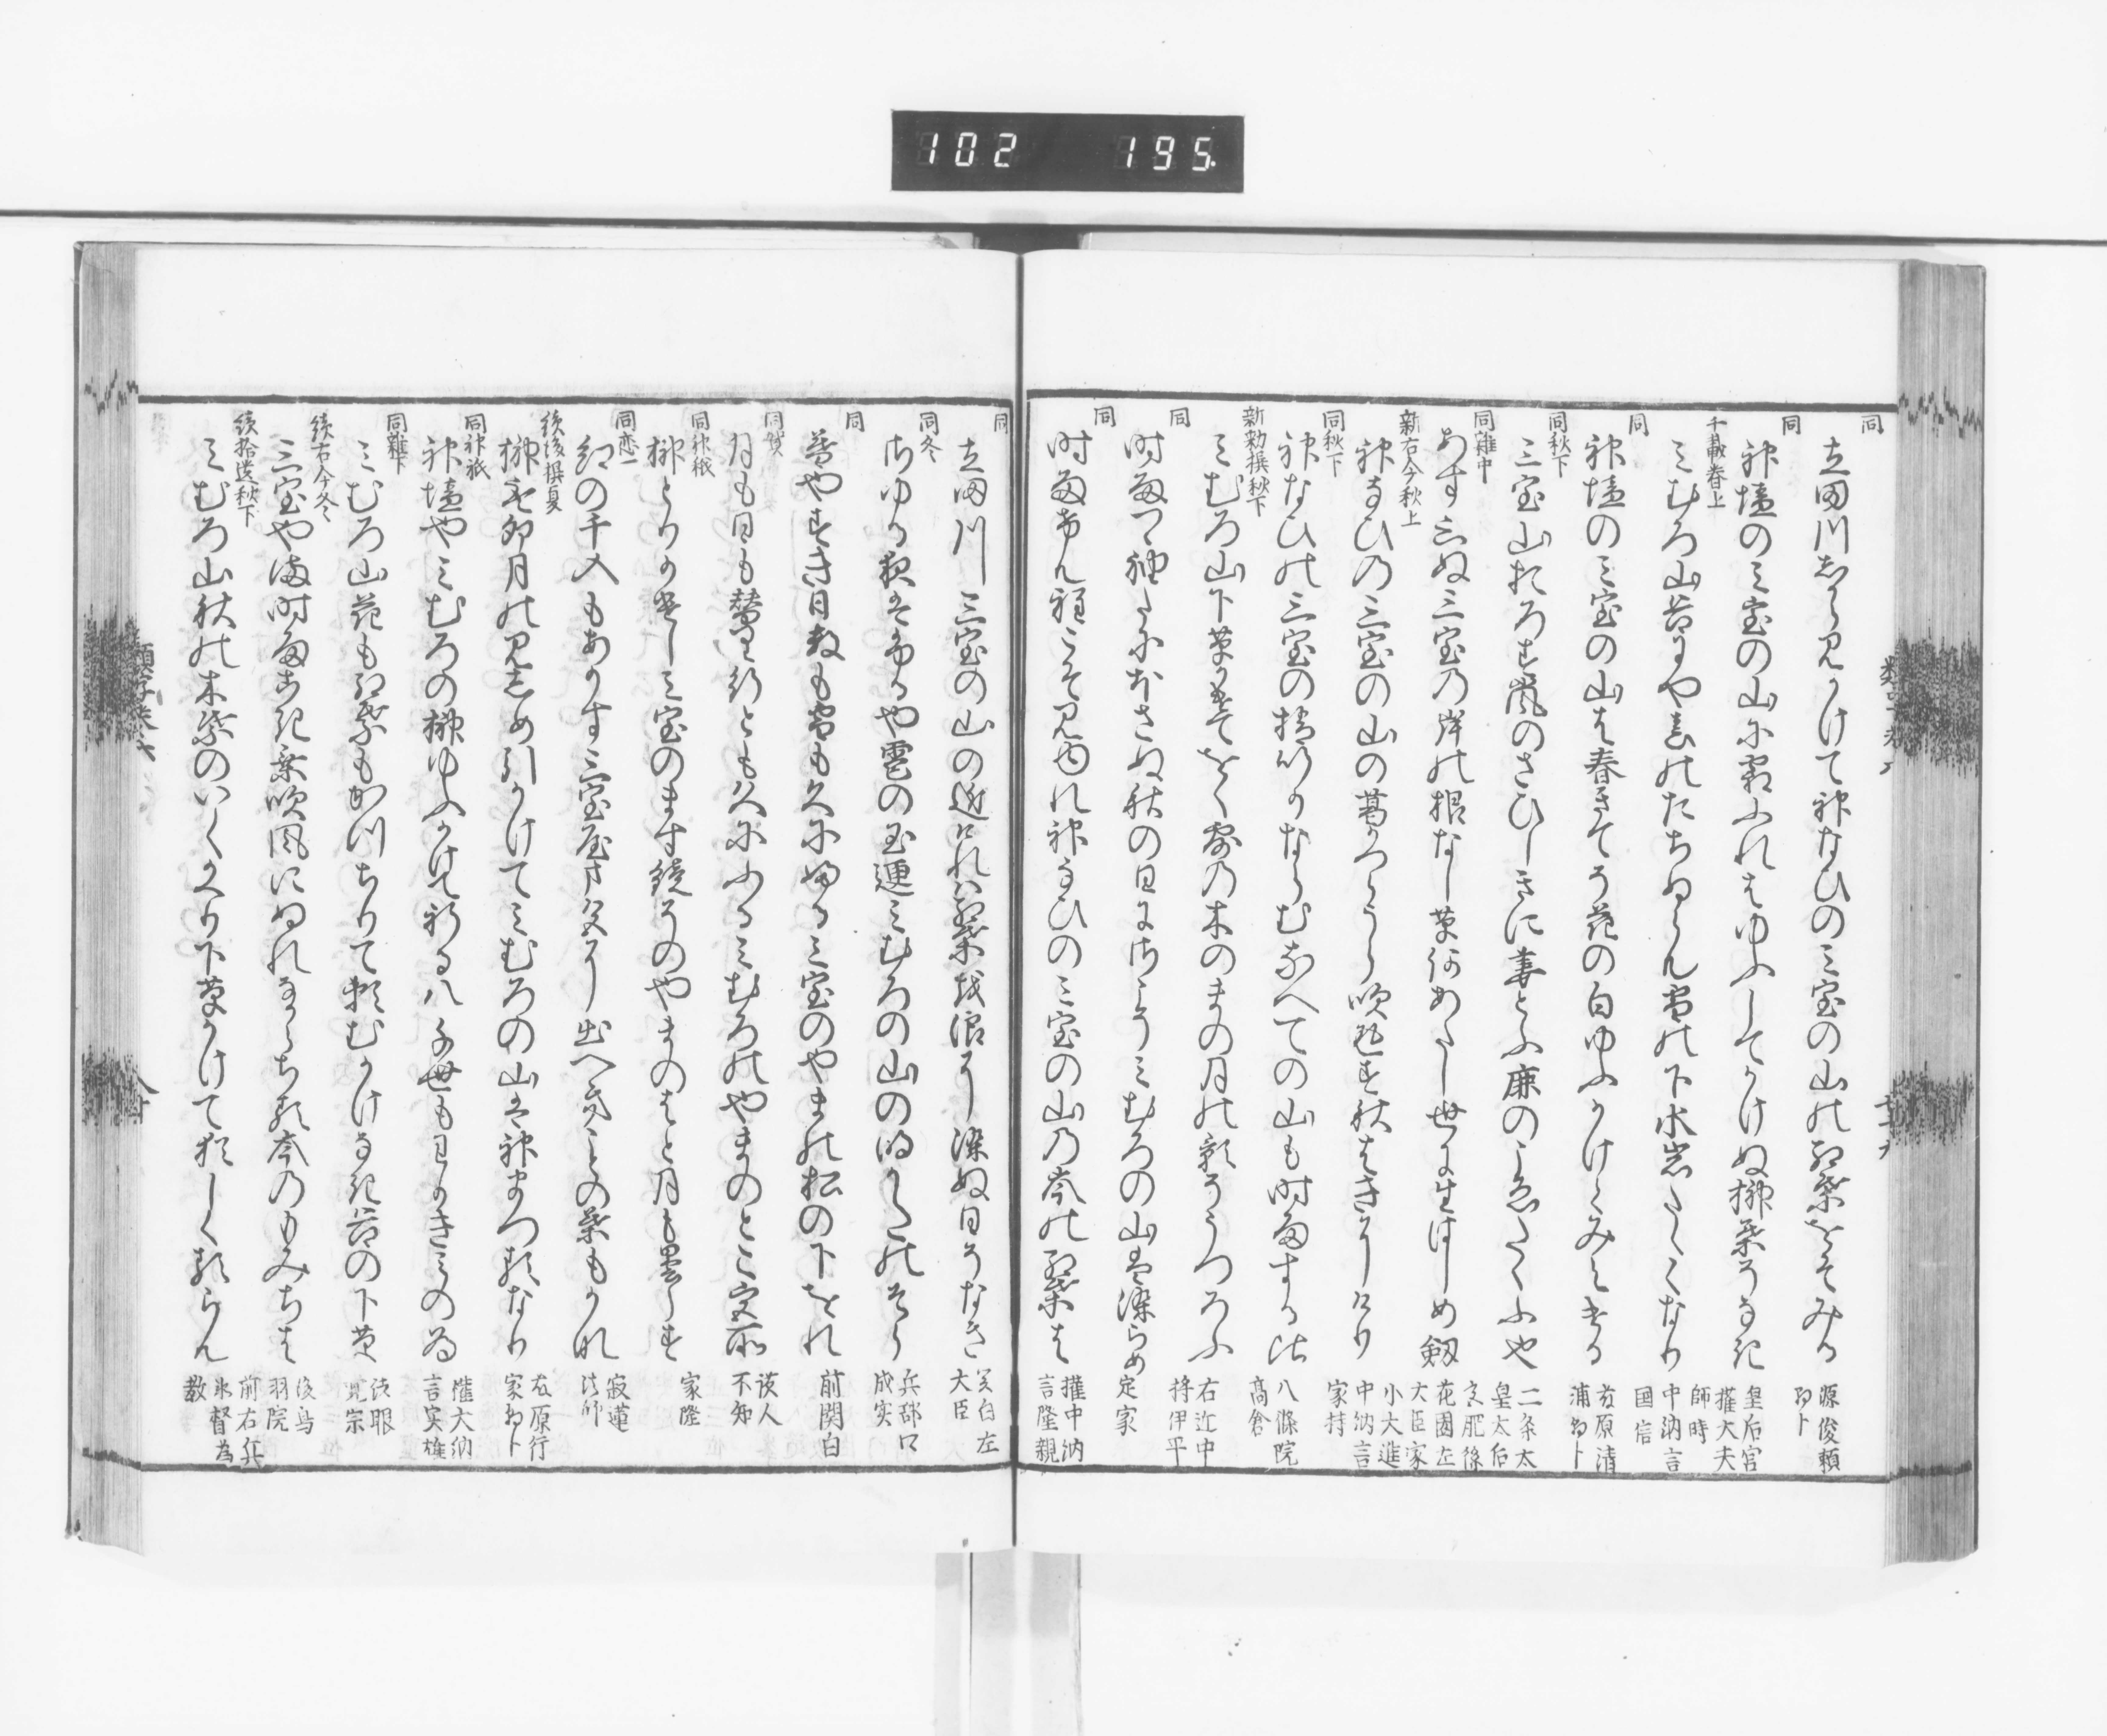 102 195
同
立田川しからみかけて神なひの三室の山の紅葉をそみる
源俊頼
朝臣
同
神垣の三室の山に霜ふれはゆふしてかけぬ榊葉そなき
皇后宮
権大夫
師時
千載春上
みむろ山谷にや春のたちぬらん雪の下水岩たゝくなり
中納言
国信
同
神垣の三室の山は春きてそ花の白ゆふかけてみえける
藤原清
輔朝臣
同秋下
三室山おろす嵐のさひしきに妻とふ鹿のこゑたくふや
二条太
皇太后
宮肥後
同雑中
あすしらぬ三室の岸の根なし草何あたし世に生はしめ剱
花園左
大臣家
小大進
新古今秋上
神なひの三室の山の葛かつらうら吹返す秋はきにけり
中納言
家持
同秋下
神なひの三室の梢いかならむなへての山も時雨する比
八條院
高倉
新勅撰秋下
みむろ山下草かけてをく露の木のまの月の影そうつろふ
右近中
将伊平
同
時雨つゝ袖たにほさぬ秋の日にさこそみむろの山は染らめ
定家
同
時雨けん程こそ見ゆれ神なひの三室の山の峯の紅葉は
権中納
言隆親
同
立田川三室の山の近けれは紅葉を浪に染ぬ日そなき
関白左
大臣
同冬
さゆる夜はふるや霰の玉運みむろの山の明かたのそら
兵部卿
成実
同
普やすき日数も雪も久にふる三室のやまの松の下をれ
前関白
同賀
月も日も替り行とも久にふるみむろのやまのとこ宮所
読人
不知
同神祇
榊とりかけし三室のます鏡そのやまのはと月も曇らす
家隆
同恋一
紅の千入もあかす三室山色に出へきことの葉もかな
寂蓮
法師
続後撰夏
榊とる卯月の見しめ引かけてみむろの山は神まつるなり
藤原行
家朝臣
同神祇
神垣やみむろの榊ゆふかけて祈る八千世もわかきみの為
権大納
言実雄
同雑下
みむろ山花も紅葉もかつちりて頼むかけなき谷の下草
法眼
兼宗
続古今冬
三室や満時雨こき乗吹風にぬれなからちる峯のもみちは
後鳥
羽院
続拾遺秋下
みむろ山秋の木葉のいくかへり下草かけて移しくるらん
前右兵
衛督為
教